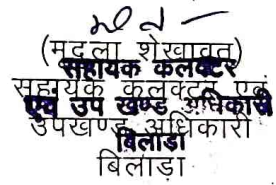 (मृदुला शेखावत)
सहायक कलक्टर
सहायक कलक्टर एवं
एवं उप खण्ड अधिकारी
उपखण्ड अधिकारी
बिलाडा
बिलाड़ा